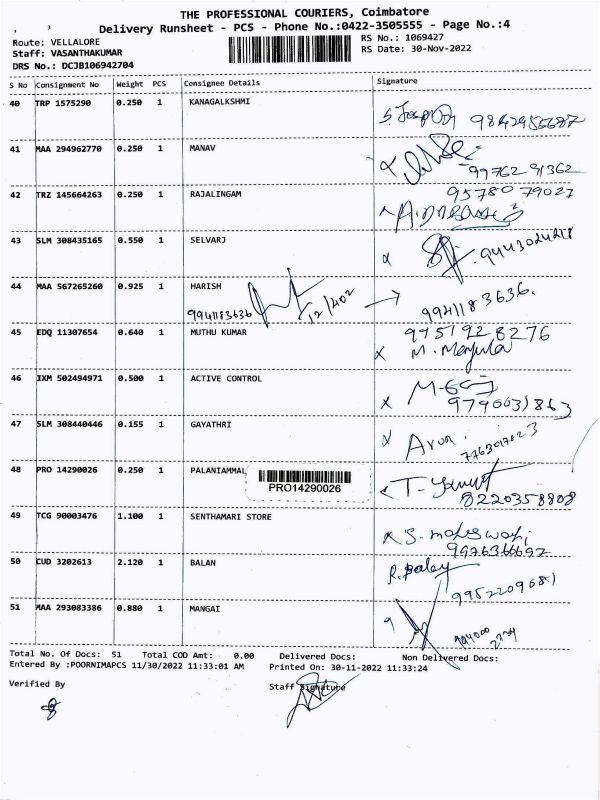 THE PROFESSIONAL COURIERS, Coimbatore
Delivery Runsheet - PCS - Phone No.:0422-3505555 - Page No.:4
Route: VELLALORE
RS No.: 1069427
Staff: VASANTHAKUMAR
RS Date: 30-Nov-2022
DRS No.: DCJB106942704
S No Consignment No Weight PCS Consignee Details Signature
40 TRP 1575290 0.250 1 KANAGALKSHMI
41 MAA 294962770 0.250 1 MANAV
99762 91362
42 TRZ 145664263 0.250 1 RAJALINGAM
95780 79027
43 SLM 308435165 0.550 1 SELVARJ
44 MAA 567265260 0.925 1 HARISH
9941183636 12/402 → 9941183636.
45 EDQ 11307654 0.640 1 MUTHU KUMAR
9751928276
M. Manjula
46 IXM 502494971 0.500 1 ACTIVE CONTROL
9790031863
47 SLM 308440446 0.155 1 GAYATHRI
Arun.
48 PRO 14290026 0.250 1 PALANIAMMAL
PRO14290026
8220358808
49 TCG 90003476 1.100 1 SENTHAMARI STORE
50 CUD 3202613 2.120 1 BALAN
9952209681
51 MAA 293083386 0.880 1 MANGAI
Total No. Of Docs: 51 Total COD Amt: 0.00 Delivered Docs: Non Delivered Docs:
Entered By :POORNIMAPCS 11/30/2022 11:33:01 AM Printed On: 30-11-2022 11:33:24
Verified By Staff Signature